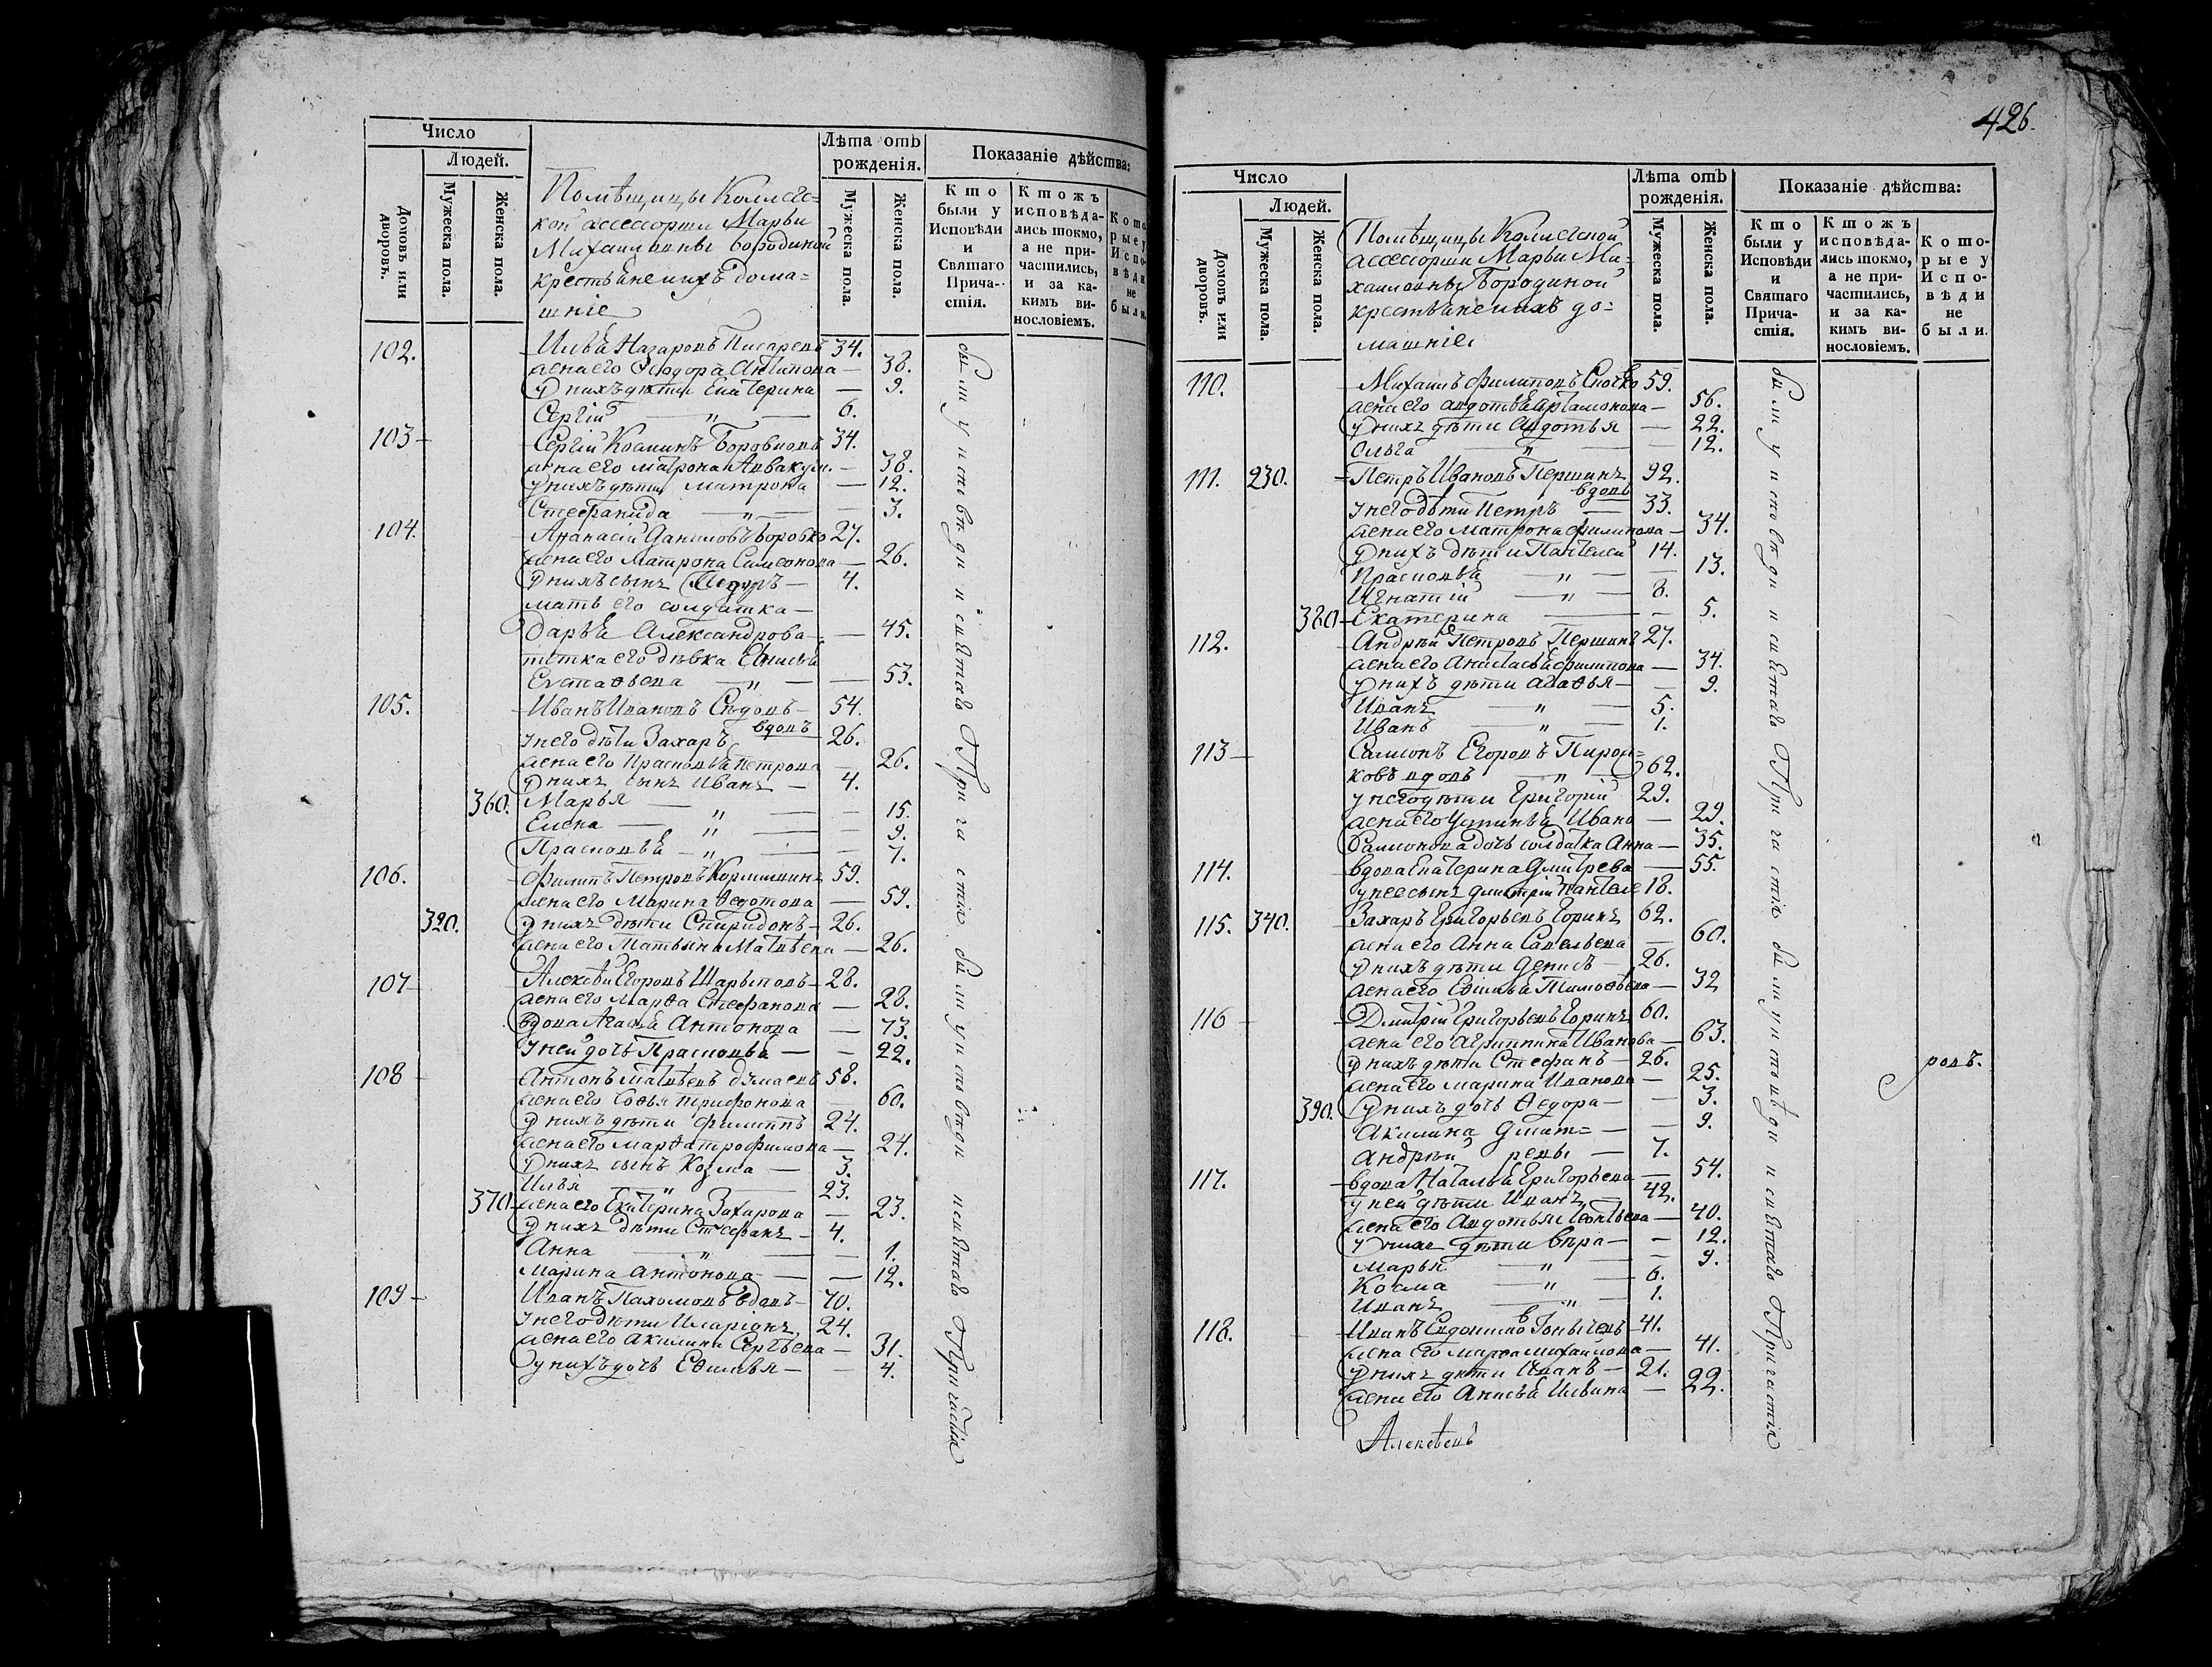 Число
Людей.
Домовъ или дворовъ.
Мужеска пола.
Женска пола.
Помѣщицы Коллеж=
кой ассесорши Марьи
Михаиловны бородиной
крестьяне ихъ дома=
шніе
Лѣта отъ рожденія.
Мужеска пола.
Женска пола.
Показаніе дѣйства:
Кто были у Исповѣди и Святаго Причастія.
Ктожъ исповѣдались токмо, а не причастились, и за какимъ винословіемъ.
Которые у Исповѣди не были.
102. Илья Назаровъ Писаревъ 34.
жена его Ѳеодора Антипова — 38.
у нихъ дѣти Екатерина — 9.
Сергій — „ — 6.
103 — Сергій Козминъ 34.
жена его матрона Аввакум. — 38.
у нихъ дѣти матрона — 12.
Стефанида — „ — 3.
104. Афанасій Даниловъ 27.
жена его Матрона Симеонова — 26.
у нихъ сынъ Петръ — 4.
мать его солдатка —
Дарья Александрова — 45.
тетка его дѣвка
Евстафьева — „ — 53.
105. Иванъ Ивановъ Сѣдовъ — 54.
вдовъ
у него дѣти Захаръ 26.
жена его Прасковья петрова — 26.
у нихъ сынъ Иванъ — 4.
360. Марья — „ — 15.
Елена — „ — 9.
Прасковья — „ — 7.
106. Филипъ Петровъ 59.
жена его Марина Ѳедотова — 59.
320. у нихъ дѣти Спиридонъ — 26.
жена его Татьяна Матвѣева — 26.
107 — Алексѣй Егоровъ Шарыповъ — 28.
жена его Марѳа Стефанова — 28.
вдова Агафья Антонова — 73.
у ней дочь Прасковья — 22.
108 — Антонъ Матвѣевъ 58.
жена его Софья трифонова — 60.
у нихъ дѣти филиппъ 24.
жена его Марѳа трофимова — 24.
у нихъ сынъ Козма — 3.
Илья — „ — 23.
370. жена его Екатерина Захарова — 23.
у нихъ дѣти Стефанъ — 4.
Анна — „ — 1.
Марина Антонова — 12.
109 — Иванъ Пахомовъ вдовъ — 70.
у него дѣти Иларіонъ 24.
жена его акилина Сергѣева — 31.
у нихъ дочь Ефимья — 4.
были у исповѣди и святаго Причастія были у исповѣди и святаго Причастія
426.
Число
Людей.
Домовъ или дворовъ.
Мужеска пола.
Женска пола.
Помѣщицы Коллежской
ассесорши Марьи Ми=
хаиловны Бородиной
крестьяне ихъ до=
машніе
Лѣта отъ рожденія.
Мужеска пола.
Женска пола.
Показаніе дѣйства:
Кто были у Исповѣди и Святаго Причастія.
Ктожъ исповѣдались токмо, а не причастились, и за какимъ винословіемъ.
Которые у Исповѣди не были.
110. Михаилъ филиповъ 59.
жена его авдотья артамонова — 56.
у нихъ дѣти Авдотья — 22.
Ольга — „ — 12.
111. 230. Петръ Ивановъ Першинъ 92.
вдовъ
у него дѣти Петръ — 33.
жена его Матрона филипова — 34.
у нихъ дѣти Пантелей 14.
Прасковья — „ — 13.
Игнатій — „ — 8.
380. Екатерина — 5.
112. Андрей Петровъ Першинъ 27.
жена его Анастасья филипова — 34.
у нихъ дѣти агафья — 9.
Иванъ — „ — 5.
Иванъ — „ — 1.
113 — Самсонъ Егоровъ Пирож=
ковъ вдовъ — „ — 62.
у него дѣти Григорій 29.
жена его Устинья Ивано — 29.
Самсонова дочь солдатка Анна — 35.
114. вдова Екатерина Дмитрева — 55.
у нее сынъ дмитрій Пантеле 18.
115. 340. Захаръ Григорьевъ Горинъ 62.
жена его Анна Савельева — 60.
у нихъ дѣти Денисъ — 26.
жена его Ефимья Тимофѣева — 32
116 — Дмитрій Григорьевъ Горинъ 60.
жена его Агриппина Иванова — 63.
у нихъ дѣти Стефанъ — 26.
жена его Марина Иванова — 25.
390. у нихъ дочь Ѳедора — 3.
Акилина Дмит= — 9.
Андрей ревы — 7.
117. вдова Наталья Григорьева — 54.
у ней дѣти Иванъ 42.
жена его Авдотья — 40.
у нихъ дѣти вѣра — 12.
Марья — „ — 9.
Козма — „ — 6.
Иванъ — „ — 1.
118. Иванъ Евдокимовъ 41.
жена его Марѳа михаилова — 41.
у нихъ дѣти Иванъ — 21.
жена его Анисья Ильина — 22.
Алексѣевъ
были у исповѣди и святаго Причастія были у исповѣди и святаго Причастія
ровъ.